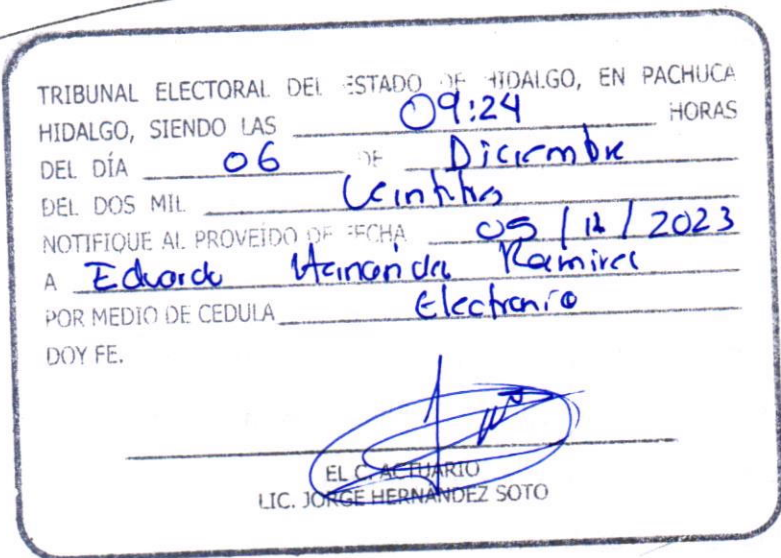 TRIBUNAL ELECTORAL DEL ESTADO DE HIDALGO, EN PACHUCA
HIDALGO, SIENDO LAS 09:24 HORAS
DEL DÍA 06 DE Diciembre
DEL DOS MIL Veintitres
NOTIFIQUE AL PROVEÍDO DE FECHA 05 / 12 / 2023
A Eduardo Hernandez Ramirez
POR MEDIO DE CEDULA Electronica
DOY FE.
EL C. ACTUARIO
LIC. JORGE HERNANDEZ SOTO